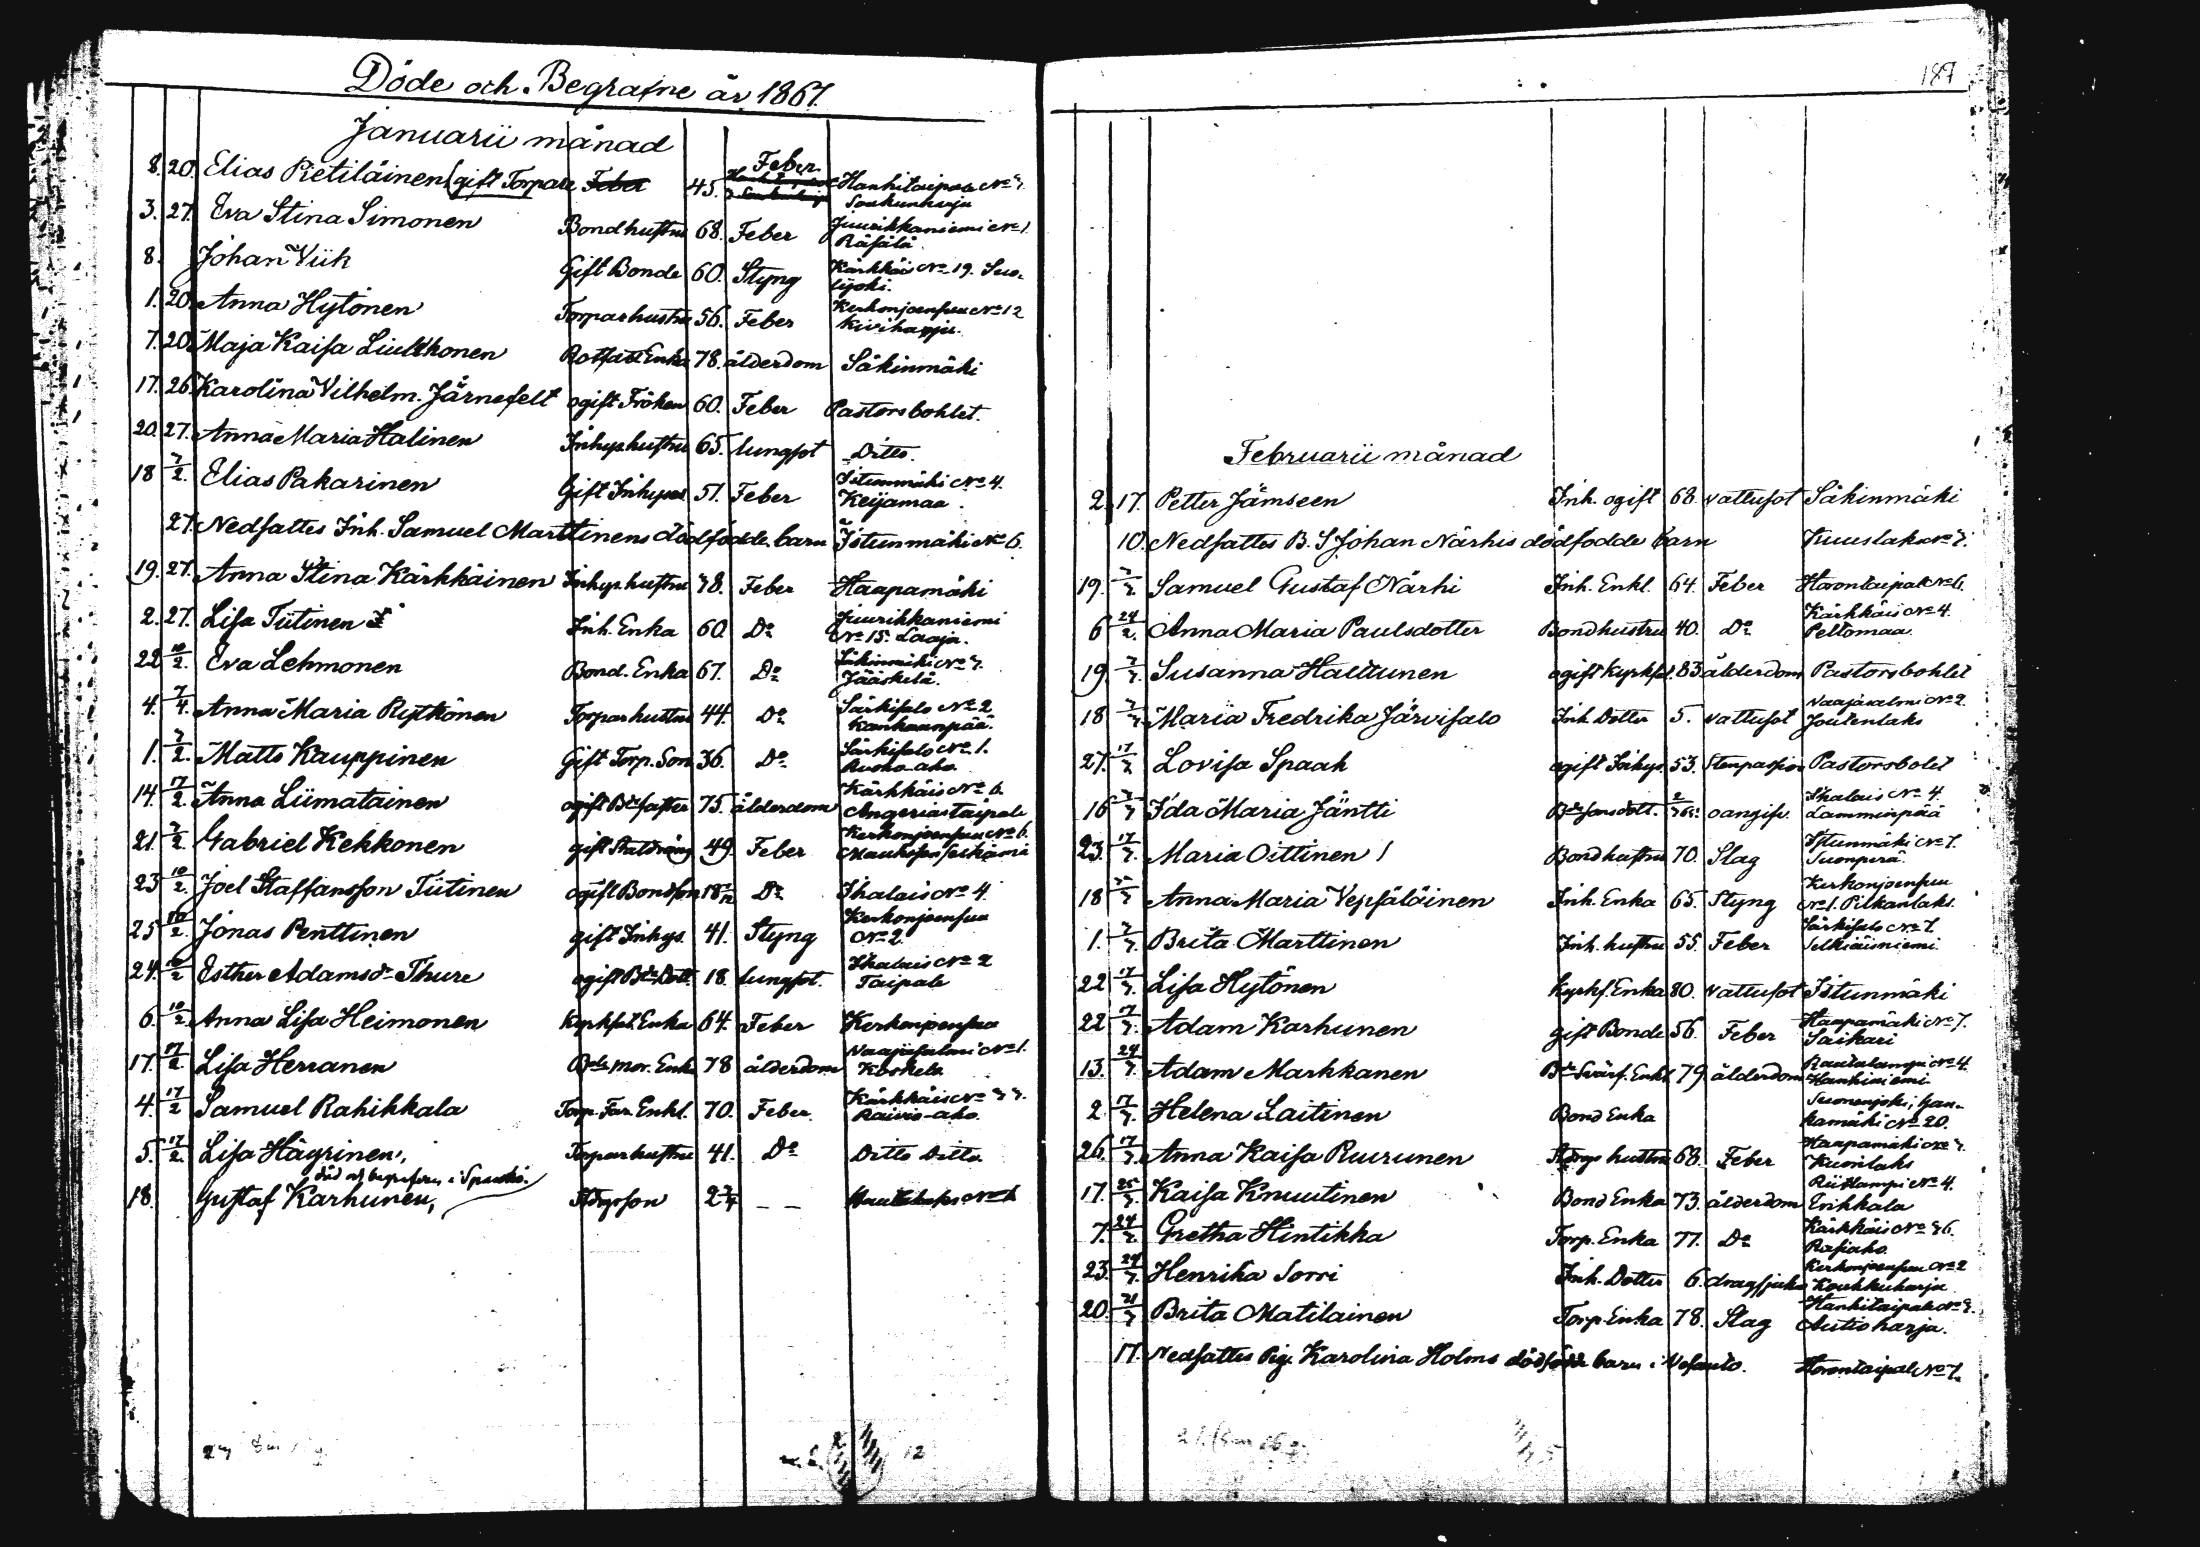 Döde och Begrafne år 1867.
Januarii månad
8. 20. Elias Pietiläinen (gift Torpare Feber 45. Feber Hankitaipale No 7. Sonkunharju
3. 27. Eva Stina Simonen Bondhustru 68. Feber Juurikkaniemi No 1. Räsälä
8. Johan Vük Gift Bonde 60. Styng Kärkkäis No 19. Suolijoki.
1. 20. Anna Hytönen Torparhustru 56. Feber Kerkonjoensuu No 12 Kiviharju.
7. 20. Maja Kaisa Liukkonen Enka 78. ålderdom Säkinmäki
17. 26. Karolina Vilhelm. Järnefelt ogift Fröken 60. Feber Pastorsbohlet.
20. 27. Anna Maria Halinen Inhys. hustru 65. lungsot Ditto.
18 7/2. Elias Pakarinen Gift Inhyses 51. Feber Istunmäki No 4. Keijamaa.
27. Nedsattes Inh. Samuel Marttinens dödfödde barn Istunmäki No 6.
19. 27. Anna Stina Kärkkäinen Inhys. hustru 78. Feber Haapamäki
2. 27. Lisa Tiitinen Inh. Enka 60. Do Juurikkaniemi No 15. Laaja.
22 10/2. Eva Lehmonen Bond. Enka 67. Do Säkinmäki No 7. Jääskelä.
4. 7/4. Anna Maria Rytkönen Torparhustru 44. Do Särkisalo No 2 Kankaanpää.
1. 7/2. Matts Kauppinen Gift Torp. Son 36. Do Särkisalo No 1. Ruoko-aho
14. 17/2. Anna Liimatainen ogift Bdefaster 75. ålderdom Kärkkäis No 6. Angeriastaipale
21. 7/2. Gabriel Kekkonen gift Statdräng 49. Feber Kerkonjoensuu No 6.
23 10/2. Joel Staffansson Tiitinen ogift Bondson 18 Do Ihalais No 4.
25 10/2. Jonas Penttinen gift Inhys. 41. Styng Kerkonjoensuu No 2
24. 10/2 Esther Adamsdr Thure ogift Bde Dott. 18. lungsot. Ihalais No 2 Taipale
6. 10/2. Anna Lisa Heimonen Kyrkfat. Enka 64. Feber Kerkonjoensuu
17. 17/2. Lisa Herranen Bde mor. Enka 78 ålderdom Naajasalmi No 1. Koskela
4. 17/2 Samuel Rahikkala Torp. Far. Enkl. 70. Feber. Kärkkäis No 33. Raivio-aho.
5. 17/2. Lisa Hägrinen, Torparhustru 41. Do Ditto Ditto.
död och begrafven i
18. Gustaf Karhunen, 2
187
Februarii månad
2. 17. Petter Jämseen Inh. ogift 68. vattusot Säkinmäki
10. Nedsattes B. S Johan Närhis dödfödde barn Kuuslaks No 7.
19. Samuel Gustaf Närhi Inh. Enkl. 64. Feber Havontaipale No 6.
6 24/2. Anna Maria Paulsdotter Bondhustru 40. Do Kärkkäis No 4. Peltomaa.
19 Susanna Halttunen ogift Kyrkfat. 83 ålderdom Pastorsbohlet
18 Maria Fredrika Järvisalo Inh. Dotter 5. vattusot Naajasalmi No 2. Joutenlaks
27. Lovisa Spaak ogift Inhys. 53. Stenpassion Pastorsbolet
16 Ida Maria Jäntti oangifv. Ihalais No 4. Lamminpää
23. Maria Oittinen Bondhustru 70. Slag Istunmäki No 7. Suonperä.
18 Anna Maria Vepsäläinen Inh. Enka 65. Styng Kerkonjoensuu No 1. Pitkänlaks.
1. Brita Marttinen Inh. hustru 55. Feber Särkisalo No 7. Selkäisniemi
22 Lisa Hytönen Kyrkf. Enka 80. vattusot Istunmäki
22 Adam Karhunen gift Bonde 56. Feber Haapamäki No 7. Saikari
13. Adam Markkanen Bde Svärf. Enkl. 79. ålderdom Rautalampi No 4. Hankiniemi
2. Helena Laitinen Bond Enka Suonenjoki, kamäki No 20.
26. Anna Kaisa Ruurunen hustru 68. Feber Haapamäki No 7. Kuonlaks
17. Kaisa Knuutinen Bond Enka 73. ålderdom Riitlampi No 4. Erikkala
7. Gretha Hintikka Torp. Enka 77. Do Kärkkäis No 36. Rasiaho.
23. Henrika Sorri Inh. Dotter 6. dragsjuka Kerkonjoensuu No 2 Koukkuharju
20. Brita Matilainen Torp. Enka 78. Slag Hankitaipale No 7. Autioharja.
17. Nedsattes Pig. Karolina Holms dödfödde barn i Vesanto. Havontaipale No 7.